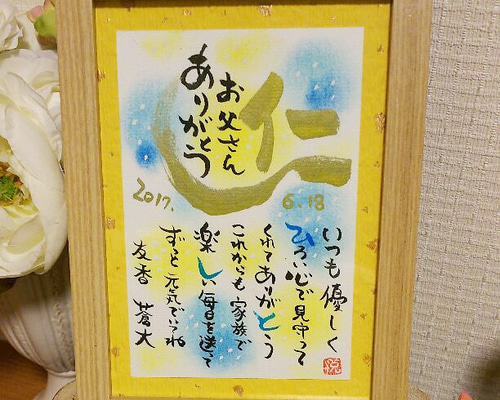 仁
お父さん
ありがとう
2017.
6.18
いつも優しく
ひろい心で見守って
くれてありがとう
これからも家族で
楽しい毎日を送って
ずっと元気でいてね
友香 蒼大